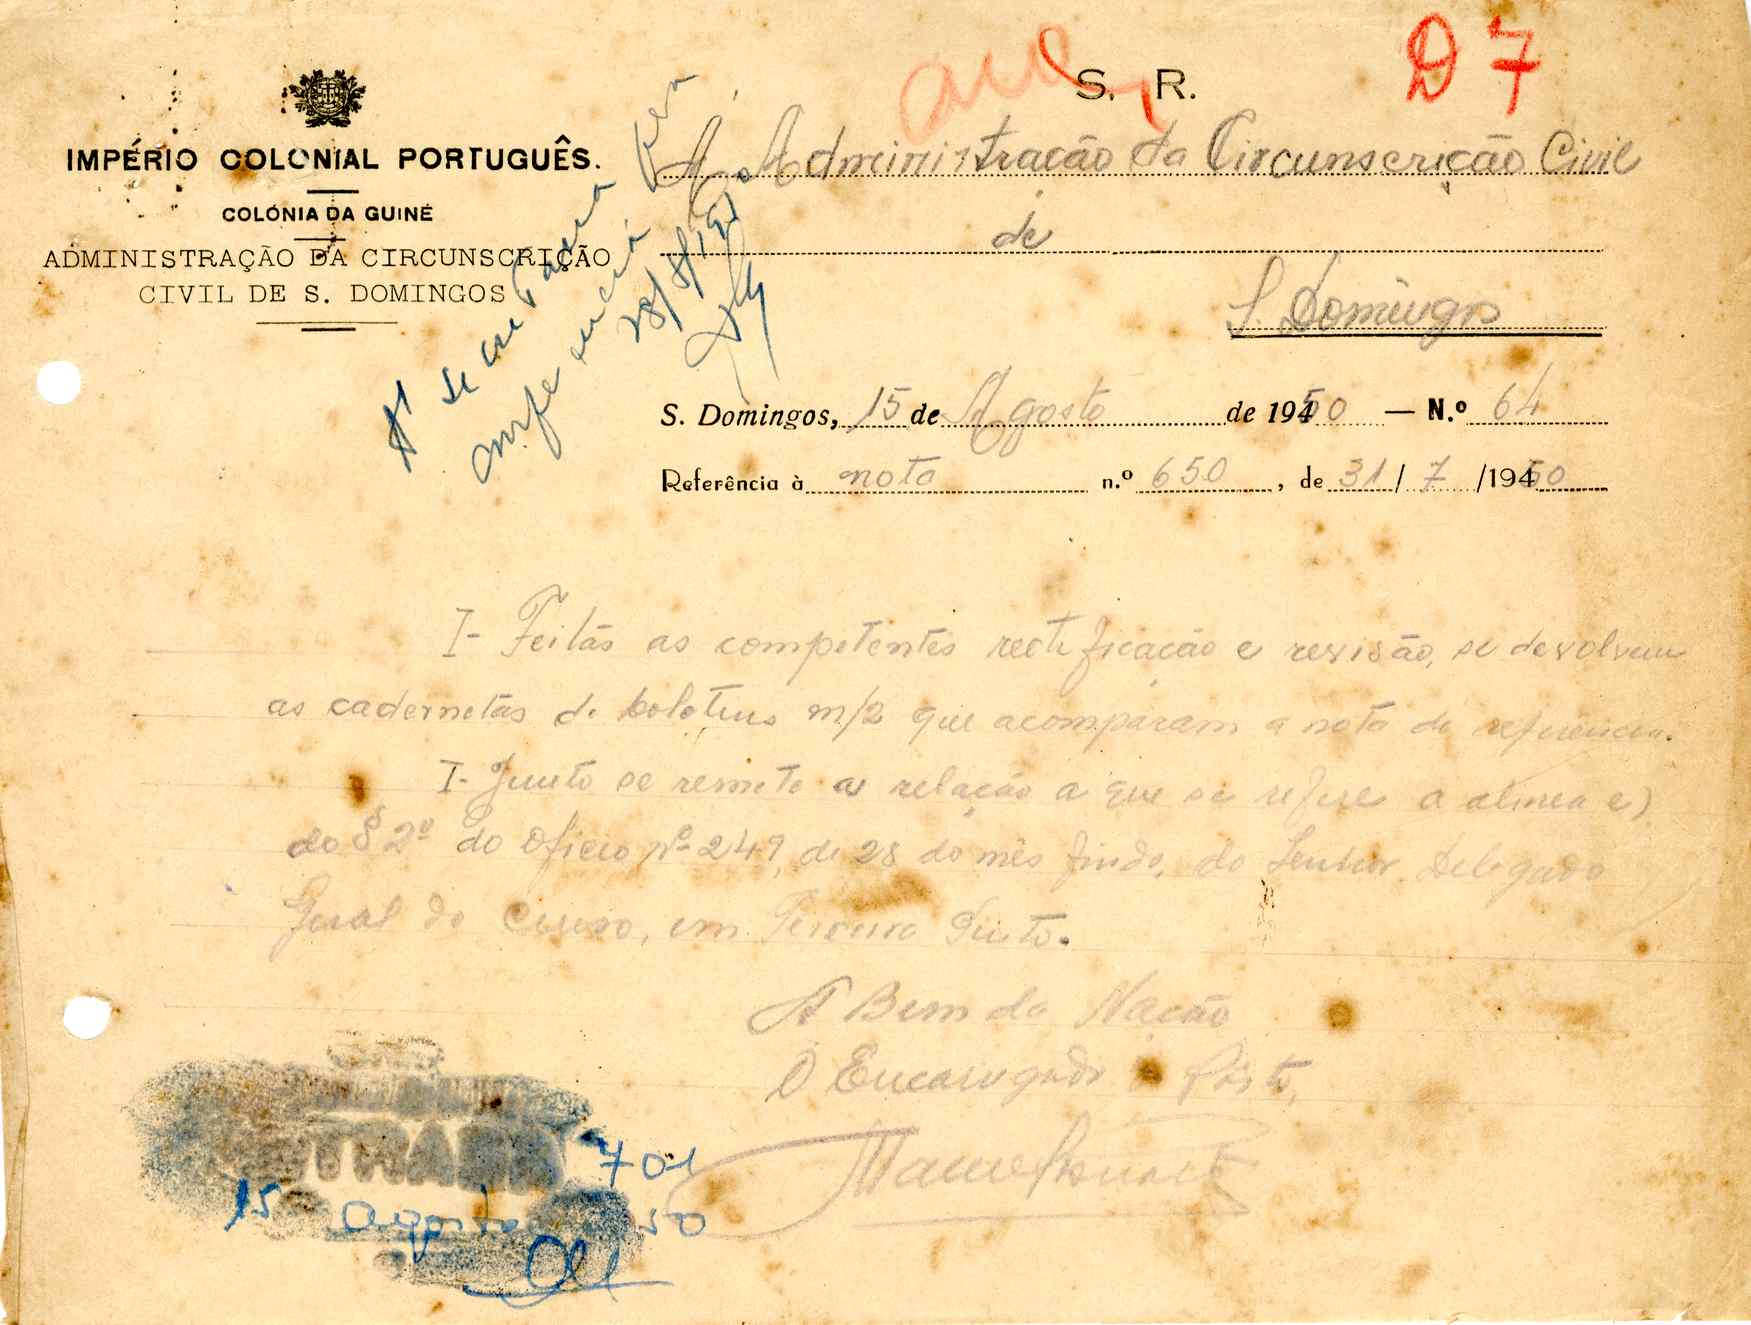 D 7
S. R.
IMPÉRIO COLONIAL PORTUGUÊS.
COLÓNIA DA GUINÉ
ADMINISTRAÇÃO DA CIRCUNSCRIÇÃO
CIVIL DE S. DOMINGOS
À Administração da Circunscrição Civil
de
S. Domingos
28/8/50
S. Domingos, 15 de Agosto de 1950 — N.º 64
Referência à nota n.º 650, de 31/7/1950
I- Feitas as competentes rectificação e revisão, se devolvem
as cadernetas de boletins m/2 que acomparam a nota de referencia.
I- Junto se remete a relação a que se refere a alinea e)
do § 2º do Oficio nº 249, de 28 do mês findo, do Senhor Delegado
Geral do Censo, em
A Bem da Nação
O Encarregado do Posto,
ENTRADA
701
15 Agosto 50